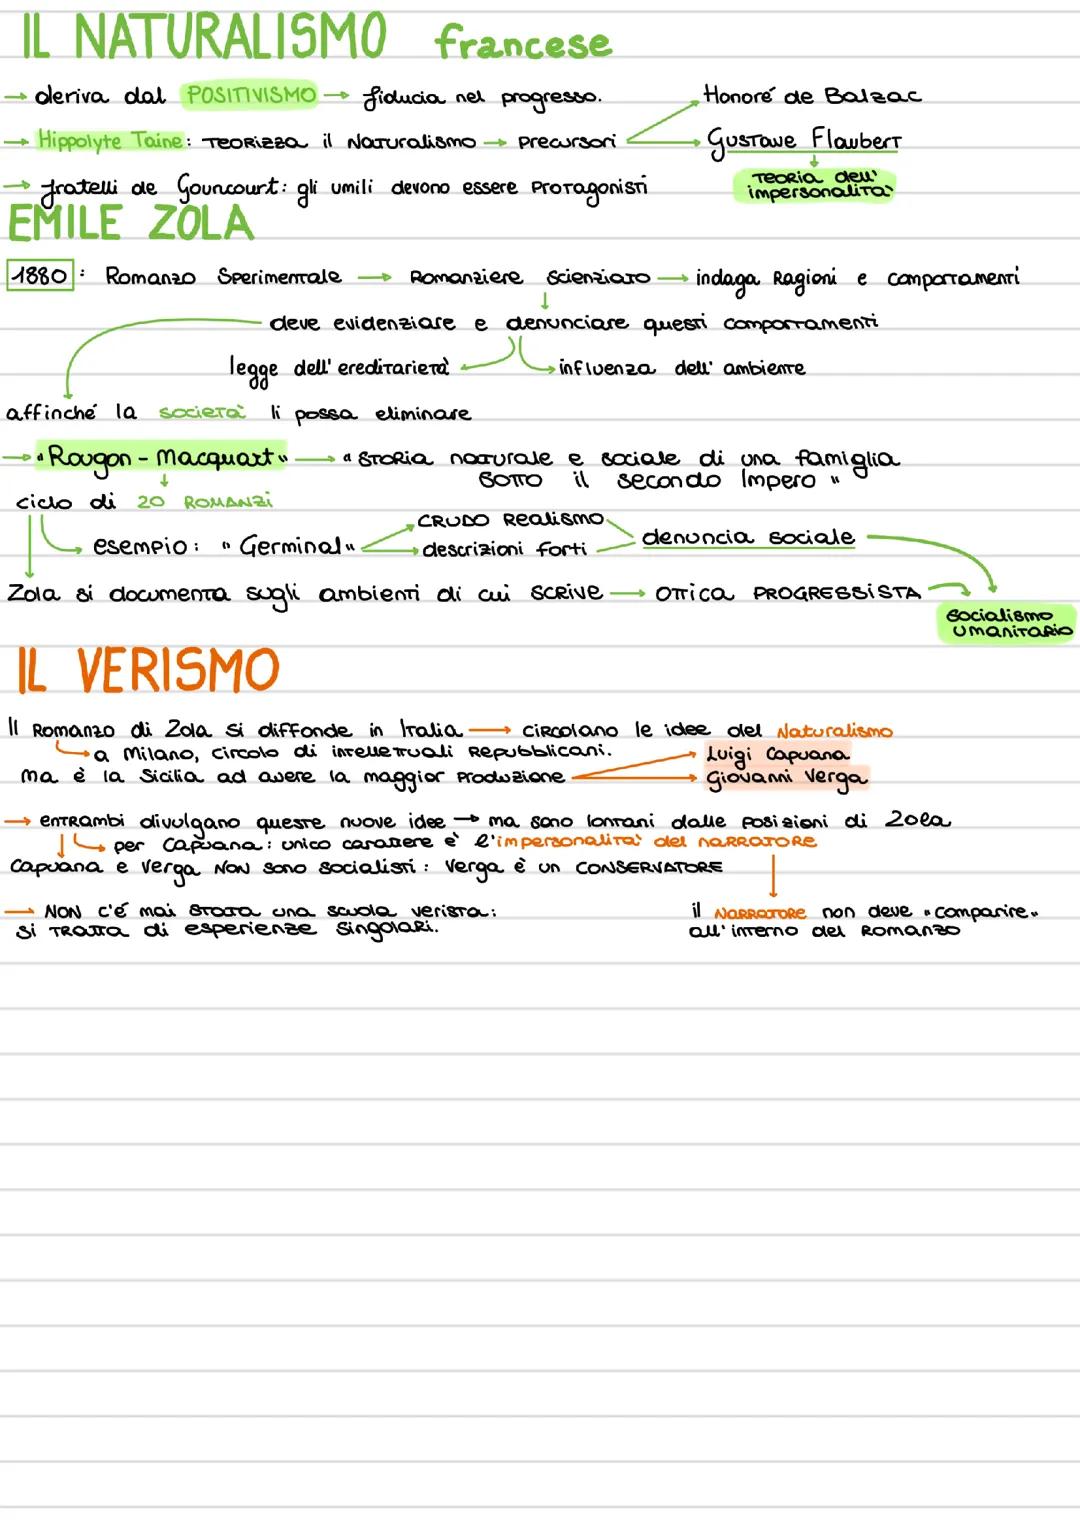 IL NATURALISMO francese
→ deriva dal POSITIVISMO → fiducia nel progresso.
Honoré de Balzac
→ Hippolyte Taine: TEORIZZA il Naturalismo → precursori
Gustave Flaubert
TEORIA dell' impersonalità
→ fratelli de Gouncourt: gli umili devono essere PROTAGONISTI
EMILE ZOLA
1880: Romanzo Sperimentale → Romanziere scienziato → indaga Ragioni e comportamenti
deve evidenziare e denunciare questi comportamenti
legge dell' ereditarietà
influenza dell' ambiente
affinché la società li possa eliminare
→ "Rougon - Macquart" → "STORIA naturale e sociale di una famiglia
SOTTO il secondo Impero"
ciclo di 20 ROMANZI
CRUDO Realismo
esempio: "Germinal"
descrizioni forti
denuncia sociale
Zola si documenta sugli ambienti di cui SCRIVE → OTTICA PROGRESSISTA
Socialismo
UMANITARIO
IL VERISMO
Il Romanzo di Zola si diffonde in Italia → circolano le idee del Naturalismo
a Milano, circolo di intellettuali Repubblicani.
Luigi Capuana
ma è la Sicilia ad avere la maggior Produzione
Giovanni Verga
→ entrambi divulgano queste nuove idee → ma sono lontani dalle posizioni di Zola
per Capuana: unico carattere è l'impersonalità del NARRATORE
Capuana e Verga NON sono socialisti: Verga è un CONSERVATORE
→ NON c'é mai STATA una scuola verista:
si TRATTA di esperienze singolari.
il NARRATORE non deve "comparire"
all'interno del ROMANZO